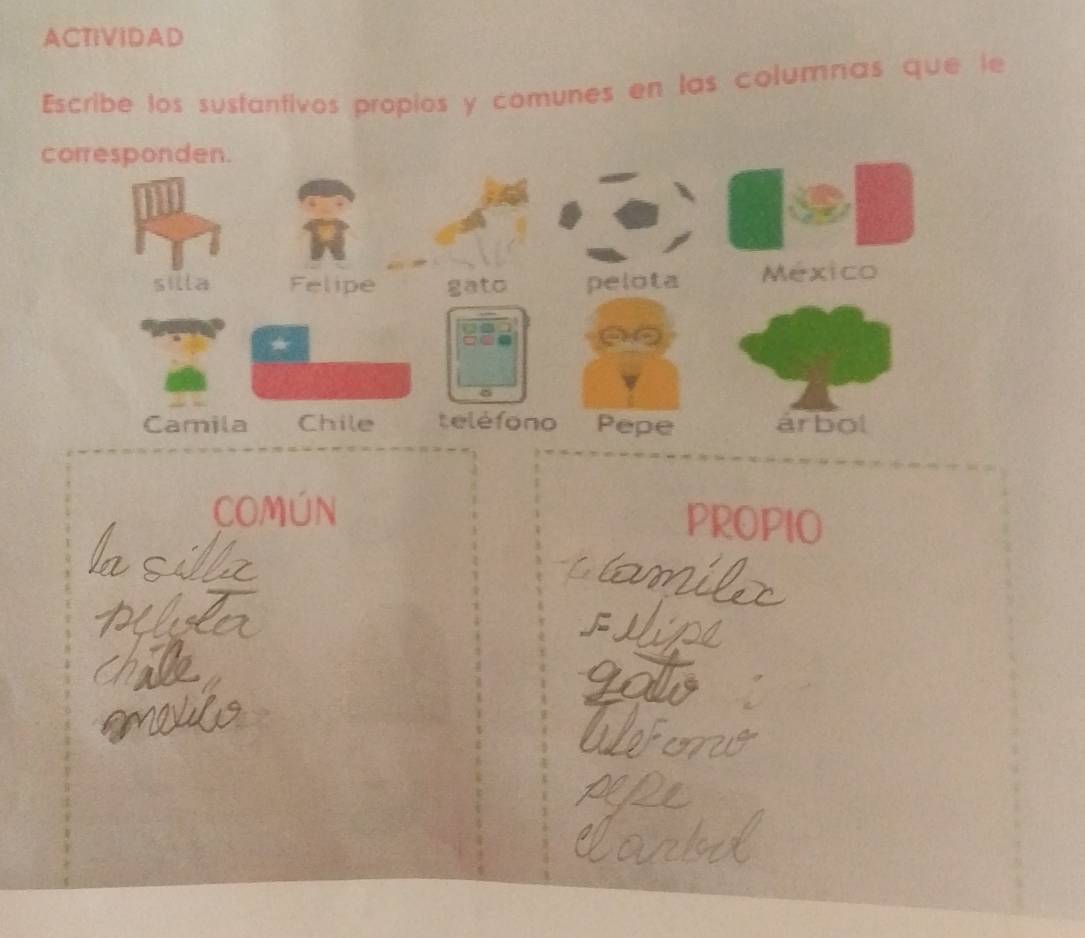 ACTIVIDAD
Escribe los sustantivos propios y comunes en las columnas que le
corresponden.
silla Felipe gato pelota México
Camila Chile teléfono Pepe árbol
COMÚN
la silla
pelota
chile
mexico
PROPIO
camila
Felipe
gato
teleFono
pepe
el arbol